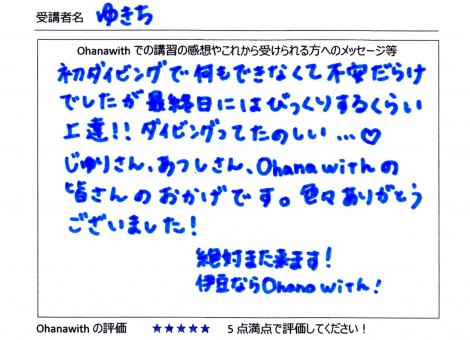 受講者名 ゆきち
Ohanawith での講習の感想やこれから受けられる方へのメッセージ等
初ダイビングで何もできなくて不安だらけ
でしたが最終日にはびっくりするくらい
上達!! ダイビングってたのしい…♡
じゅりさん、あつしさん、Ohanawithの
皆さんのおかげです。色々ありがとう
ございました!
絶対また来ます!
伊豆ならOhanawith!
Ohanawith の評価 ★★★★★ 5 点満点で評価してください!